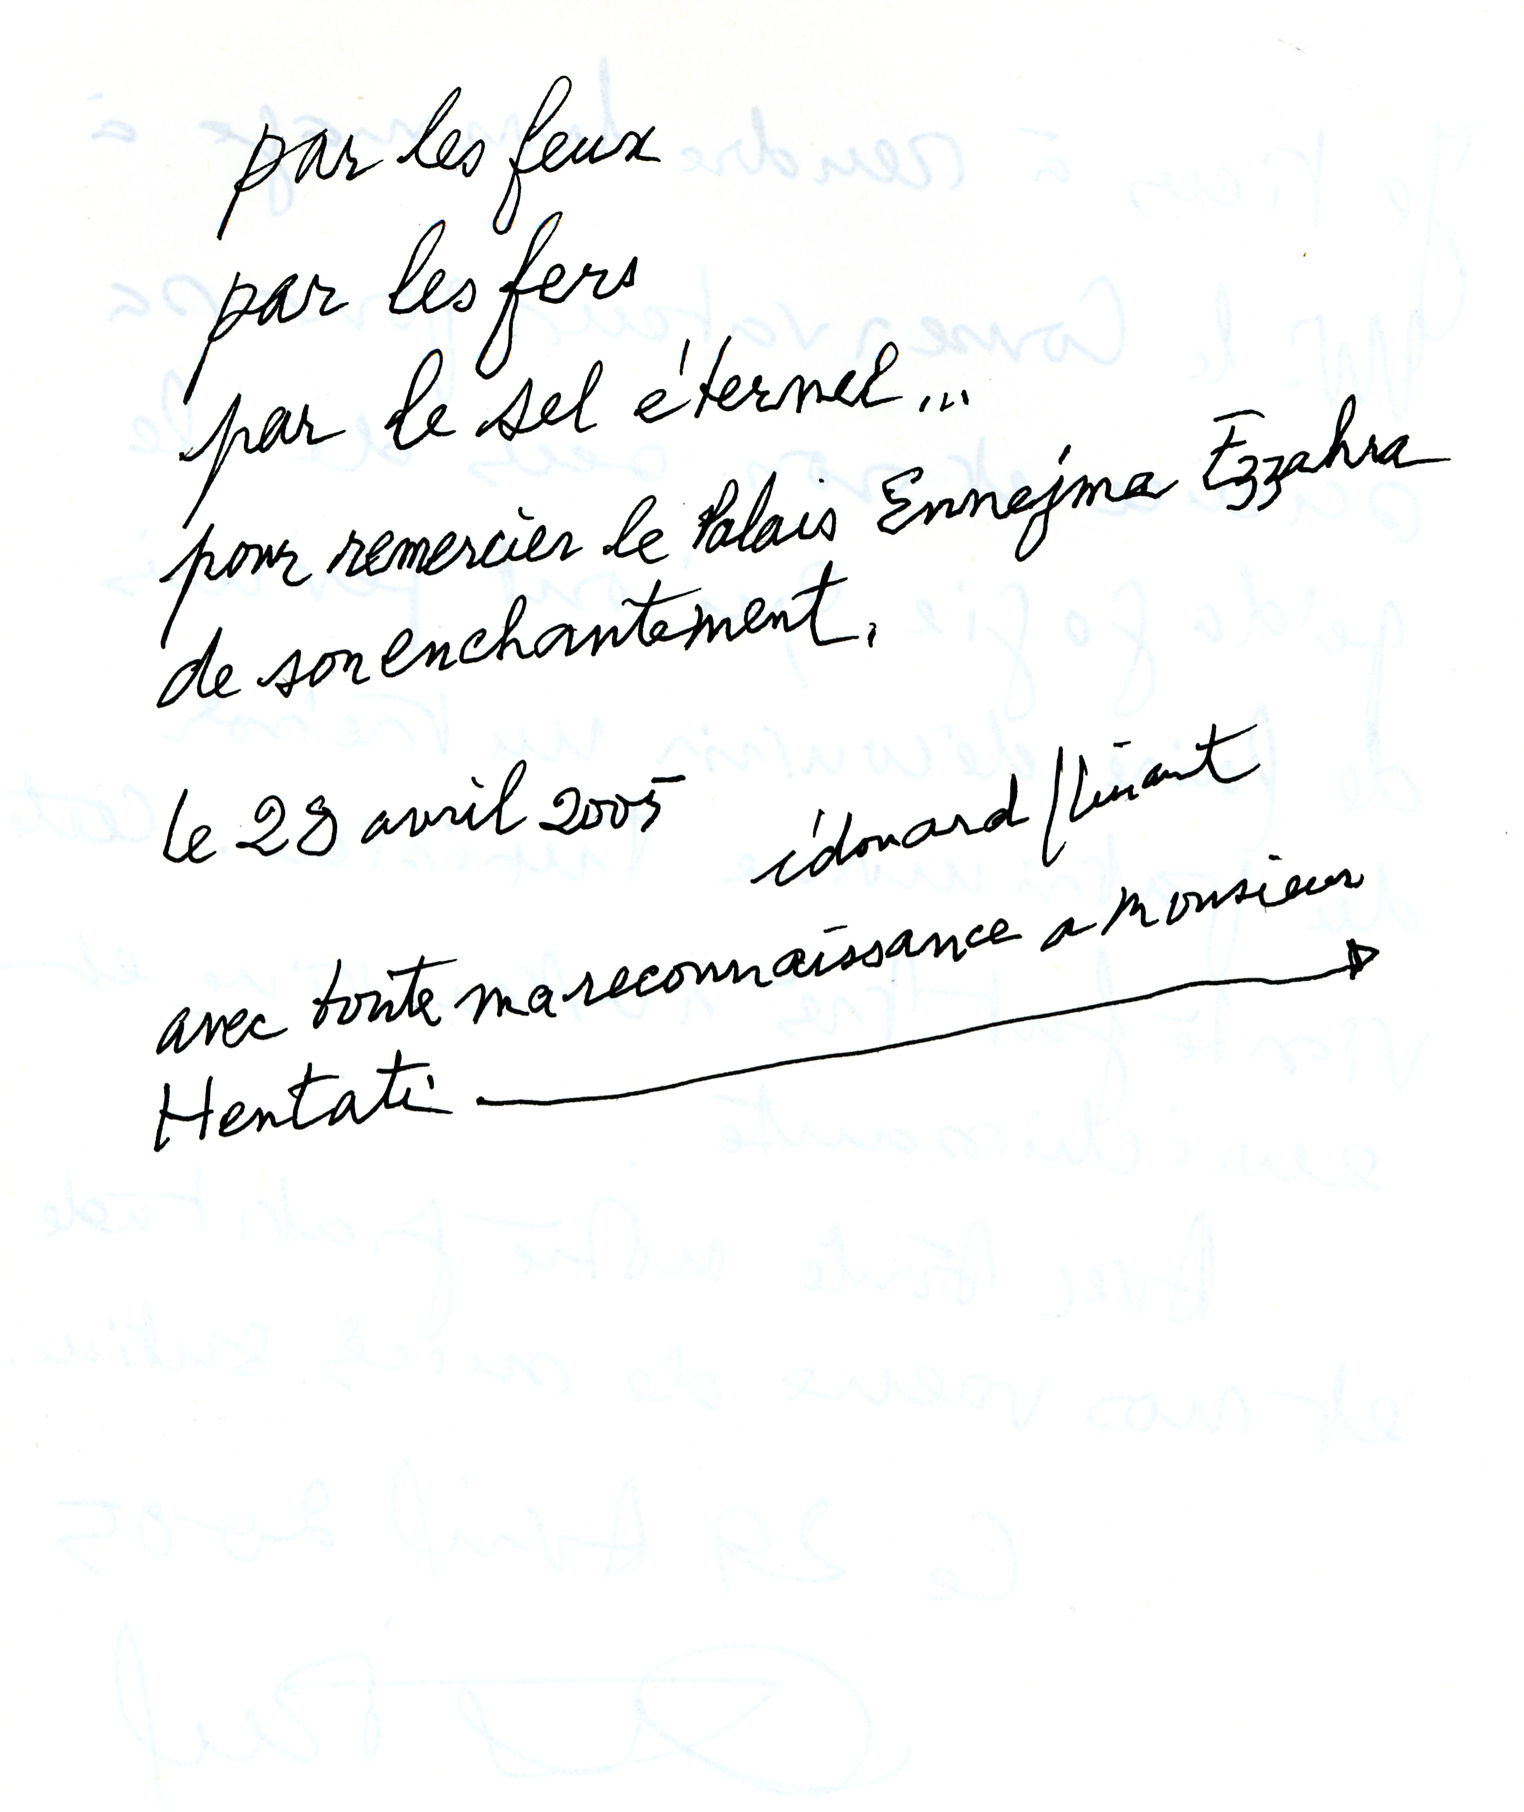 par les feux
par les fers
par le sel éternel...
pour remercier le Palais Ennejma Ezzahra
de son enchantement.
le 28 avril 2005
édouard
avec toute ma reconnaissance a Monsieur
Hentati